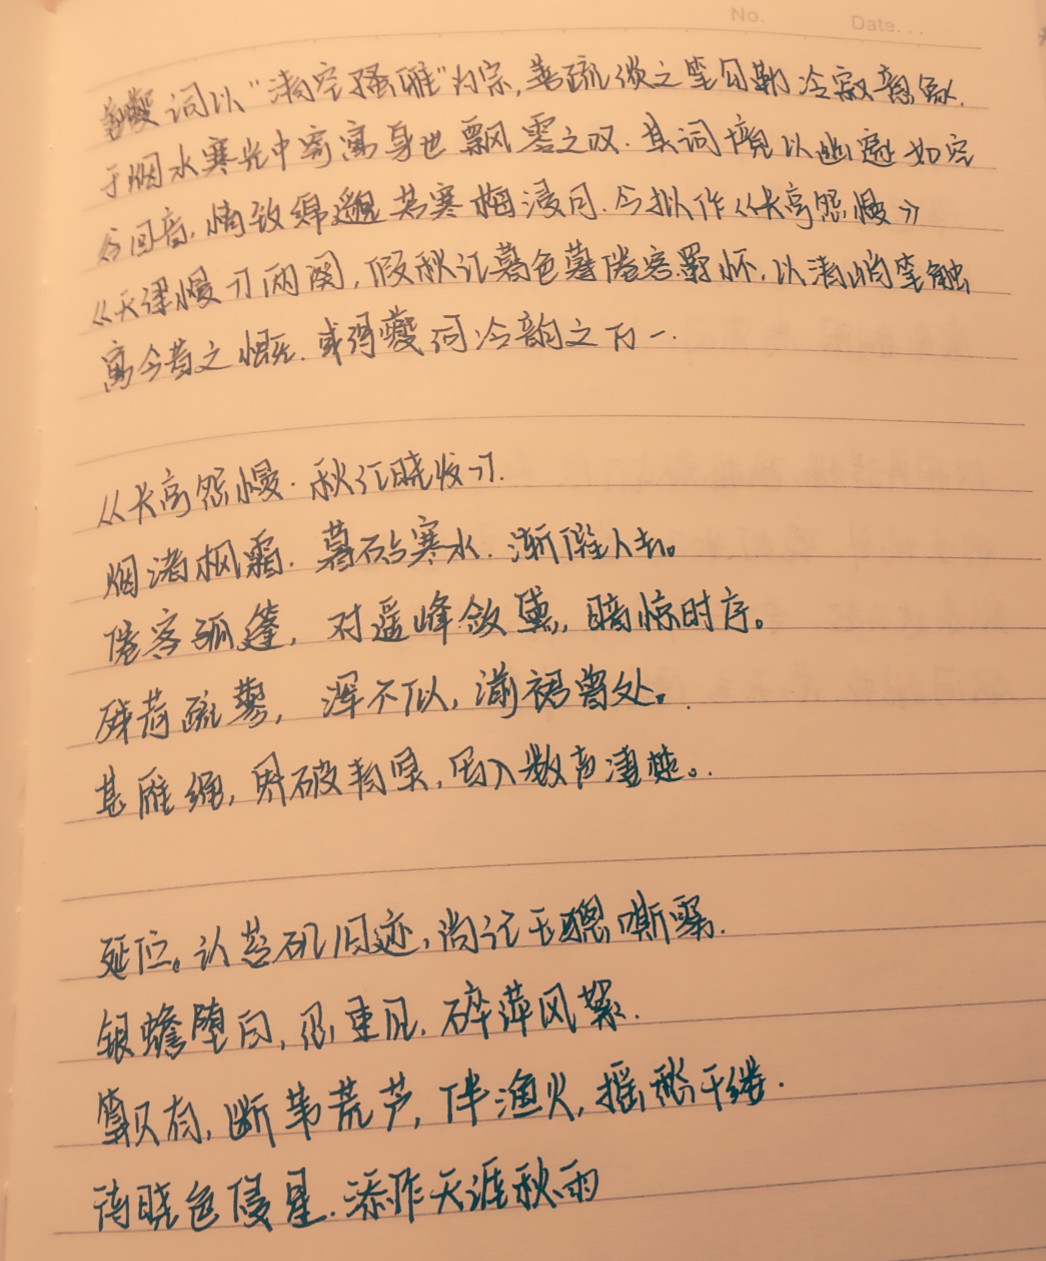 No. Date...
姜夔词以"清空骚雅"为宗,善疏淡之笔勾勒冷寂意象.
于烟水寒光中寄寓身世飘零之叹.其词境以幽邃如空
谷回音,情致绵邈若寒梅浸月.今拟作《长亭怨慢》
《天泽慢》两阕,假秋江暮色写倦客羁怀,以清峭笔触
寓今昔之慨.或得夔词冷韵之万一.
《长亭怨慢·秋江晓发》.
烟渚枫霜.暮砧寒水.渐催人去。
倦客孤篷,对遥峰敛黛,暗惊时序。
残荷疏蓼,浑不似,湔裙曾处。
甚雁绳,界破初冥,写入数声凄楚。
延伫。认苔矶旧迹,尚记玉骢嘶露.
银蟾堕白,忍重见.碎萍风絮.
算只有,断苇荒芦,伴渔火,摇愁千缕.
待晓色侵星.添作天涯秋雨